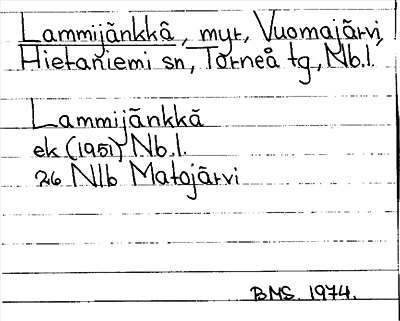 Lammijänkkä, myr, Vuomajärvi,
Hietaniemi sn, Torneå tg, Nb.l.
Lammijänkkä
ek (1951) Nb.l.
26 NIb Matojärvi
BMS. 1974.